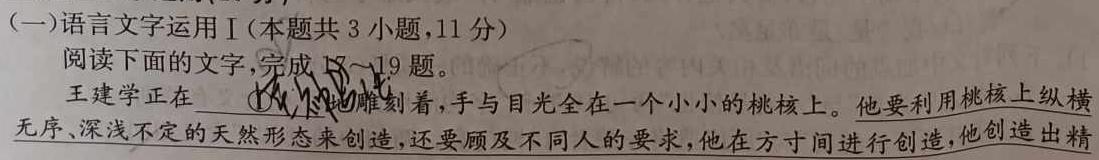 (一)语言文字运用Ⅰ(本题共3小题,11分)
阅读下面的文字,完成17～19题。
王建学正在 ① 地雕刻着,手与目光全在一个小小的桃核上。他要利用桃核上纵横
无序、深浅不定的天然形态来创造,还要顾及不同人的要求,他在方寸间进行创造,他创造出精